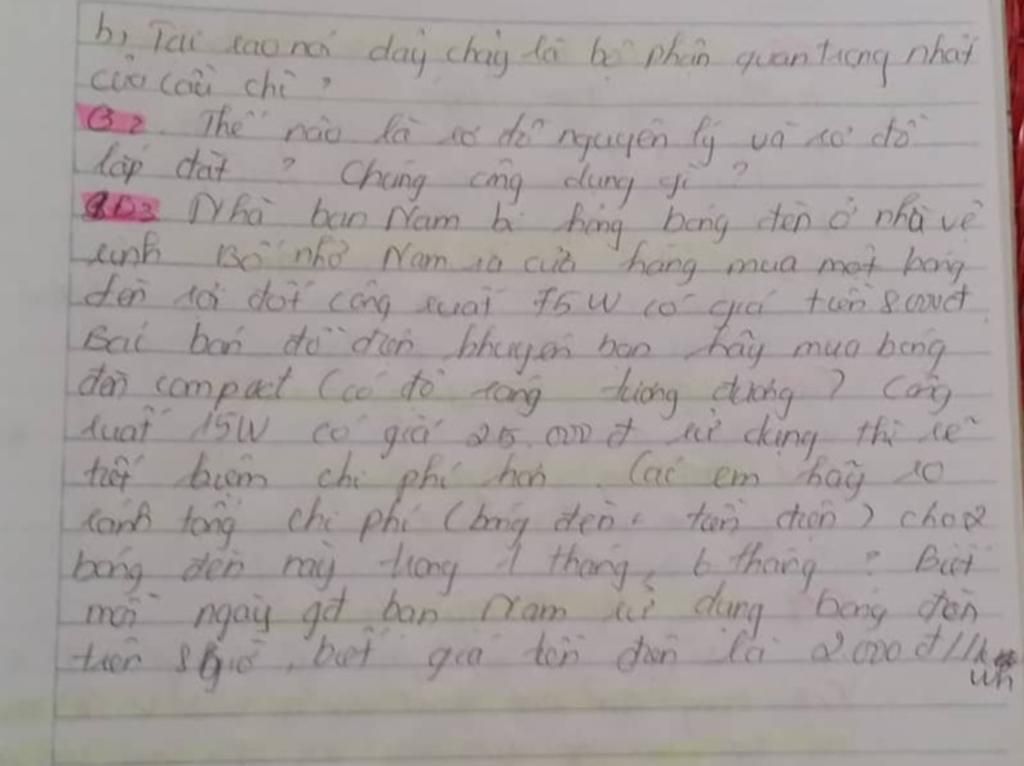 b, Tại sao nói dây chảy là bộ phận quan trọng nhất
của cầu chì ?
B2. Thế nào là sơ đồ nguyên lý và sơ đồ
lắp đặt ? Chúng công dụng gì ?
Nhà bạn Nam bị hỏng bóng đèn ở nhà vệ
sinh Bố nhờ Nam ra cửa hàng mua một bóng
đèn sợi đốt công suất 75W có giá tiền 8.000đ
Bác bán đồ điện khuyên bạn hãy mua bóng
đèn compact (có độ sáng tương đương) Công
suất 15W có giá 25.000đ sử dụng thì sẽ
tiết kiệm chi phí hơn. Các em hãy so
sánh tổng chi phí (bóng đèn + tiền điện) cho 2
bóng đèn này trong 1 tháng, 6 tháng ? Biết
mỗi ngày gđ bạn Nam sử dụng bóng đèn
trên 8 giờ, biết giá tiền điện là 2.000đ/1k
wh